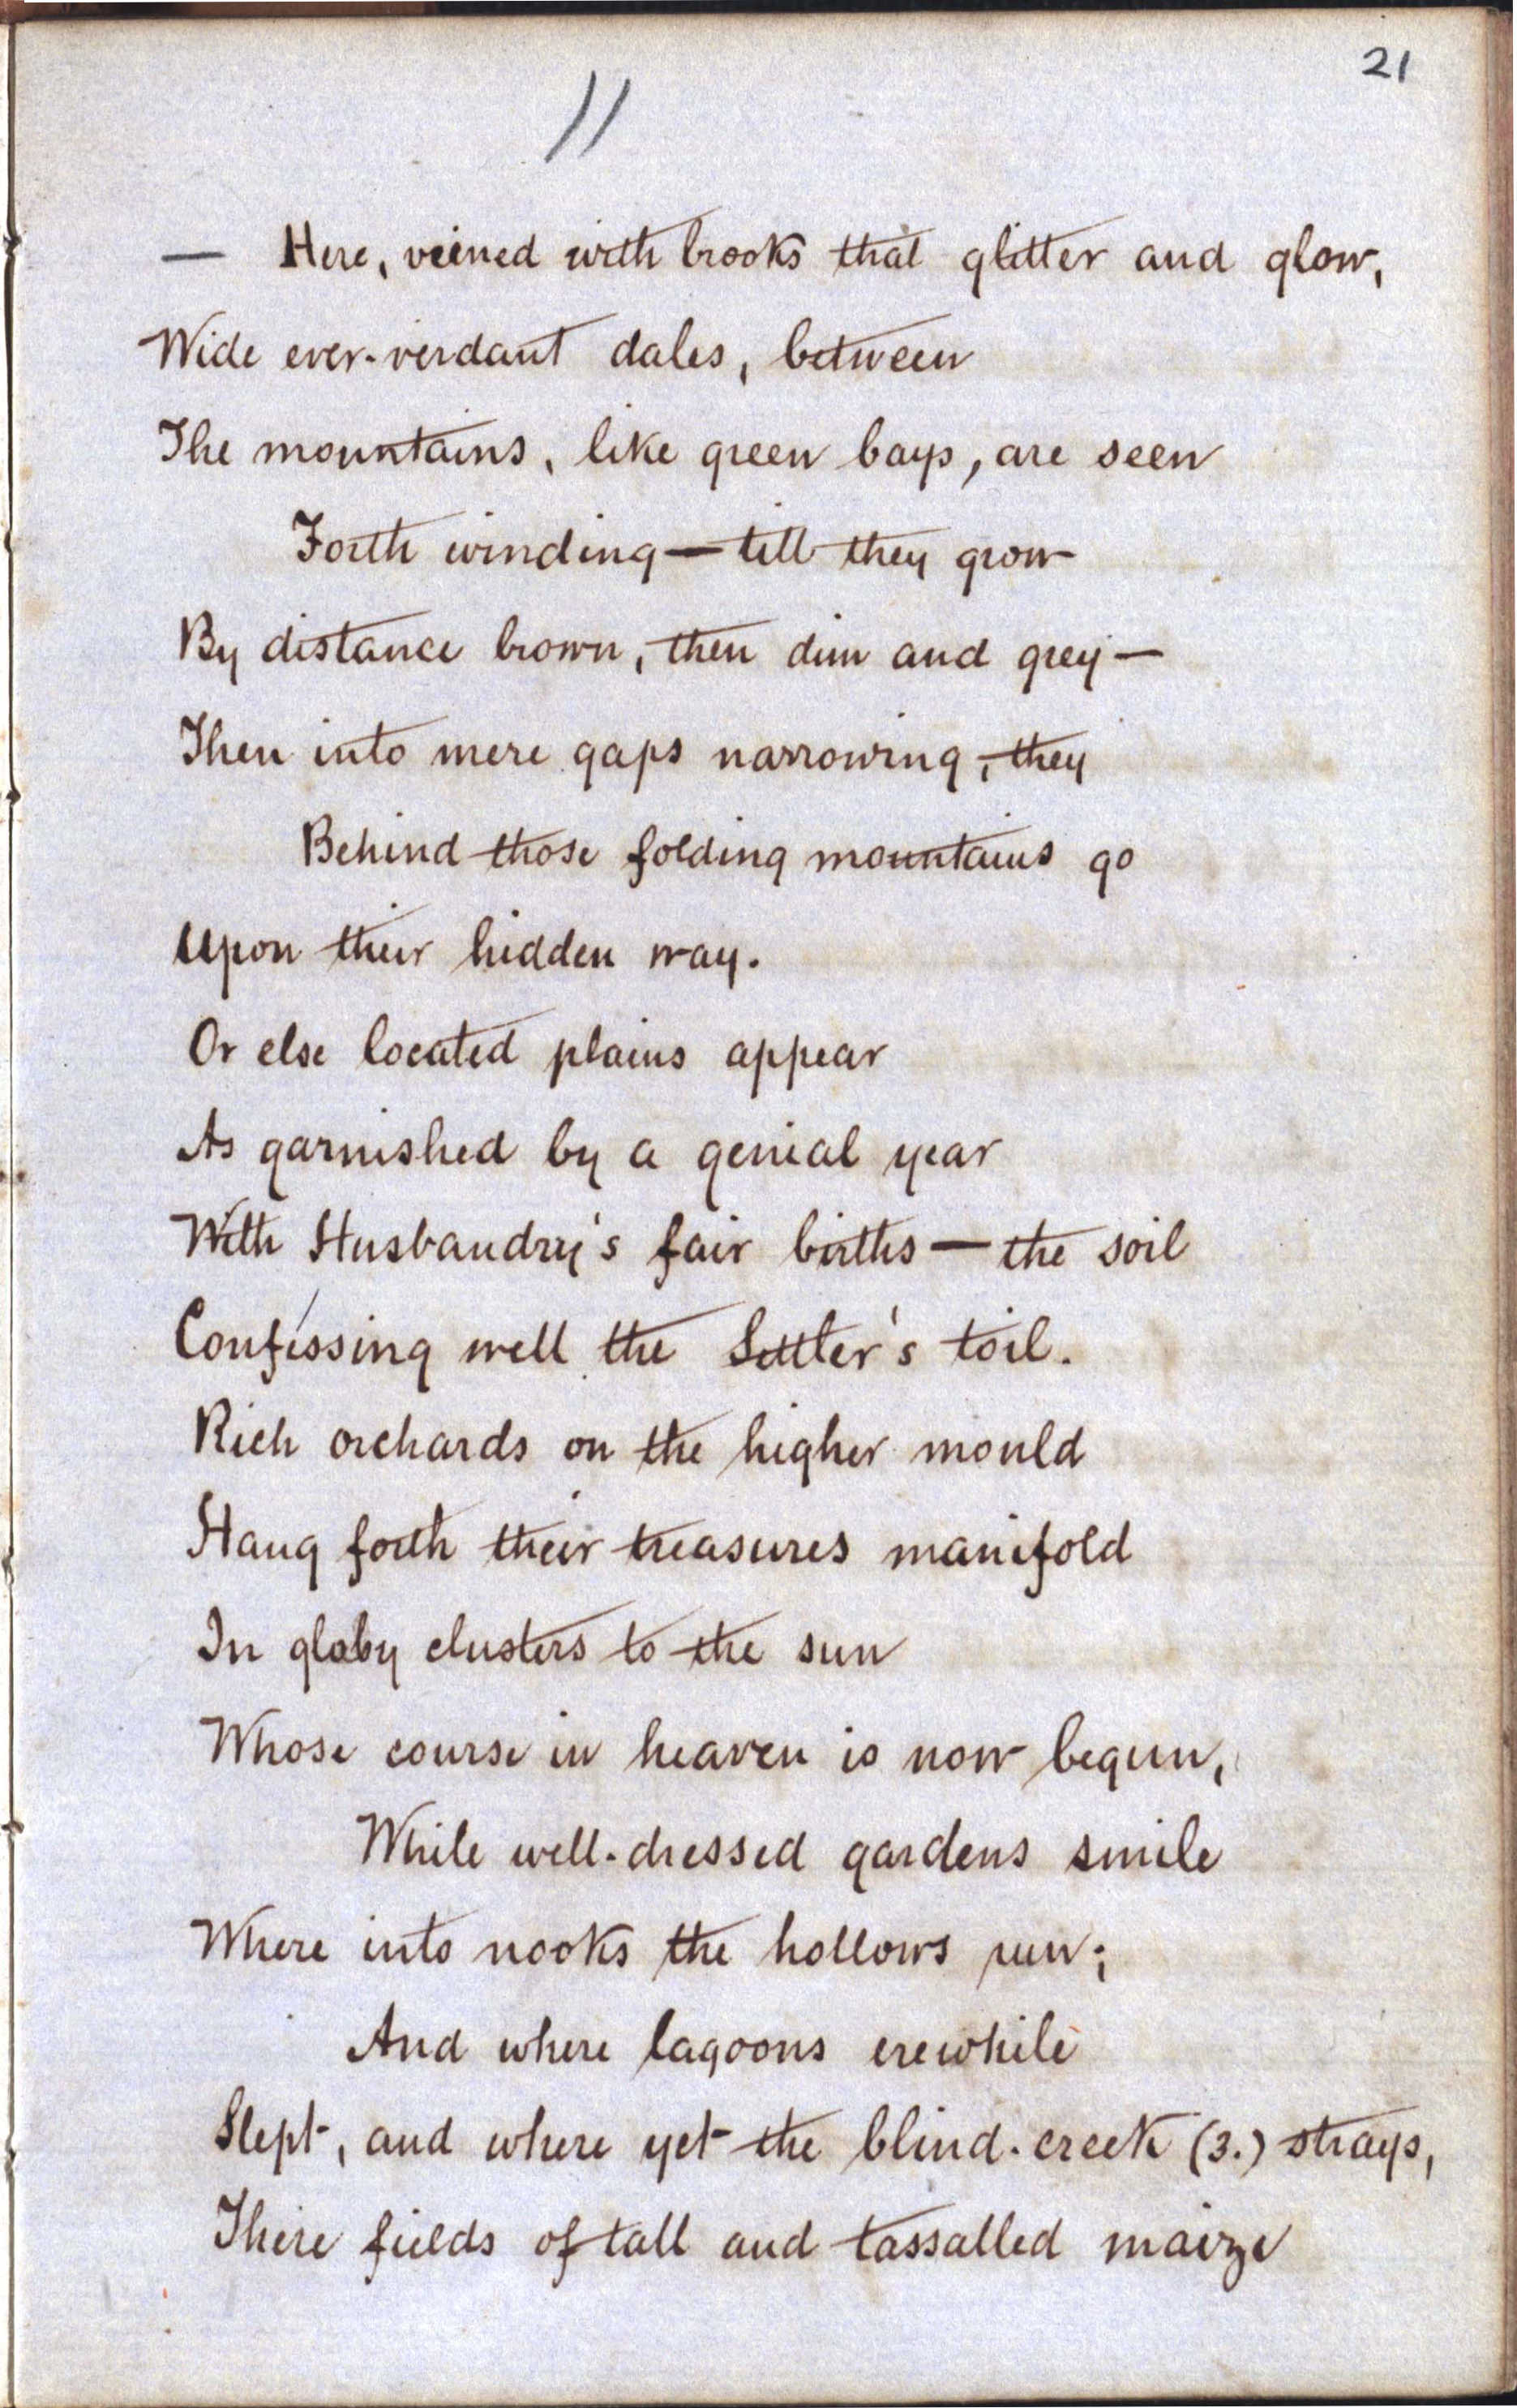 21
11
— Here, veined with brooks that glitter and glow,
Wide ever-verdant dales, between
The mountains, like green bays, are seen
Forth winding — till they grow
By distance brown, then dim and grey —
Then into mere gaps narrowing, they
Behind those folding mountains go
Upon their hidden way.
Or else located plains appear
As garnished by a genial year
With Husbandry's fair births — the soil
Confessing well the Settler's toil.
Rich orchards on the higher mould
Hang forth their treasures manifold
In globy clusters to the sun
Whose course in heaven is now begun,
While well-dressed gardens smile
Where into nooks the hollows run;
And where lagoons erewhile
Slept, and where yet the blind-creek (3.) strays,
There fields of tall and tassalled maize